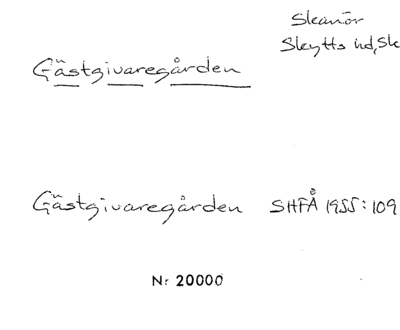 Skanör
Skytts hd, Sk
Gästgivaregården
Gästgivaregården SHFÅ 1955:109
Nr 20000